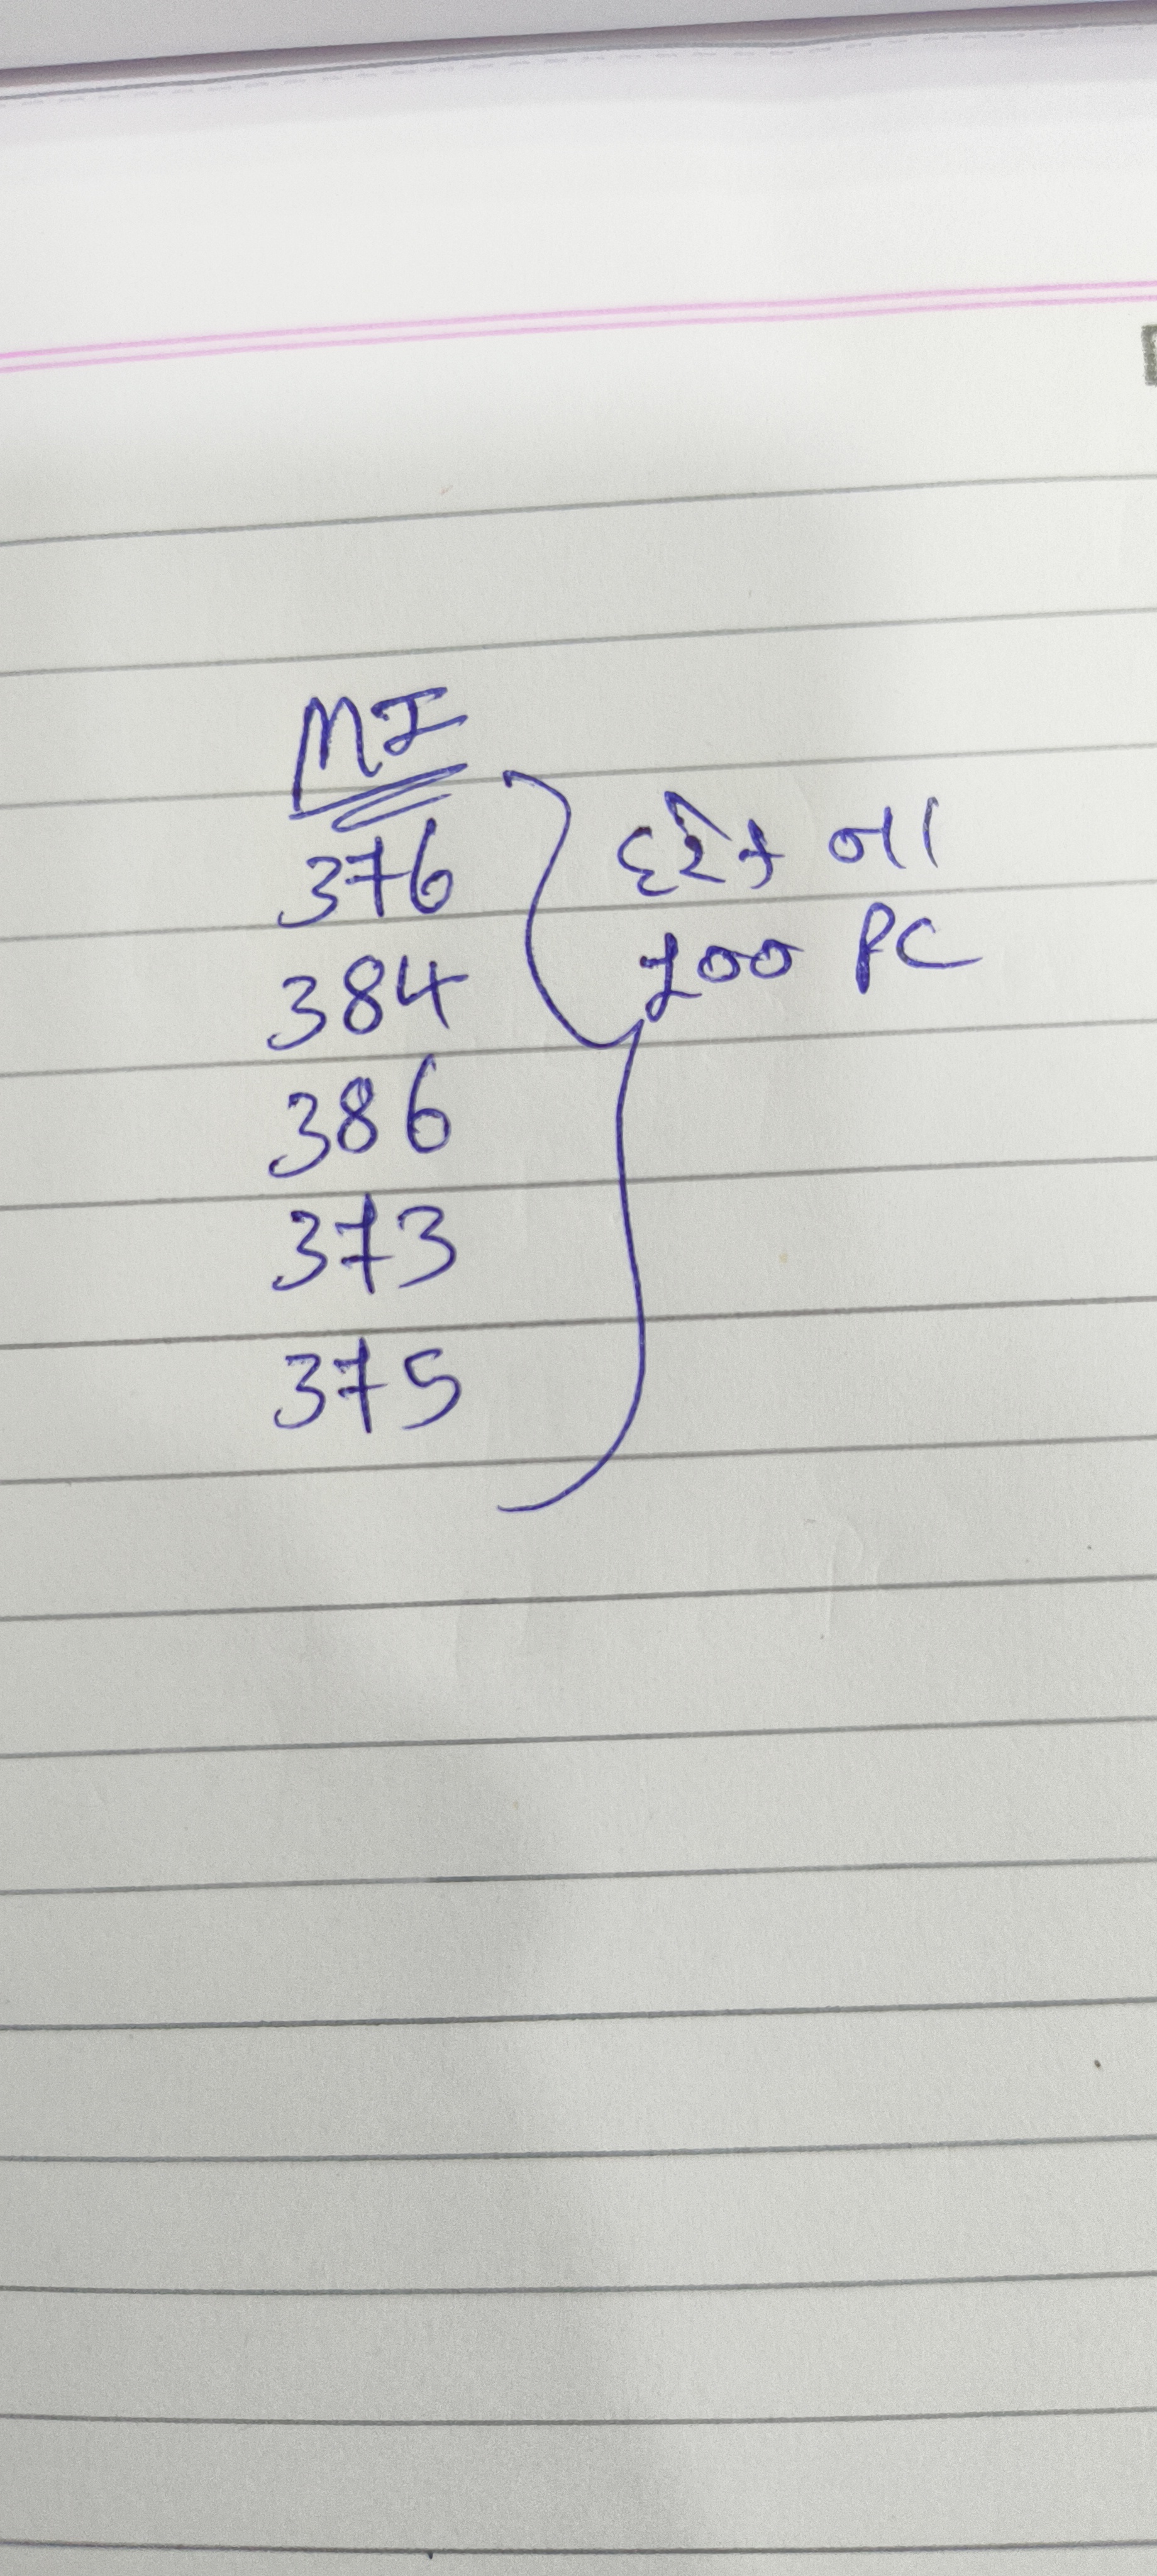 MI
376
384
386
373
375
દરેક ના
200 PC